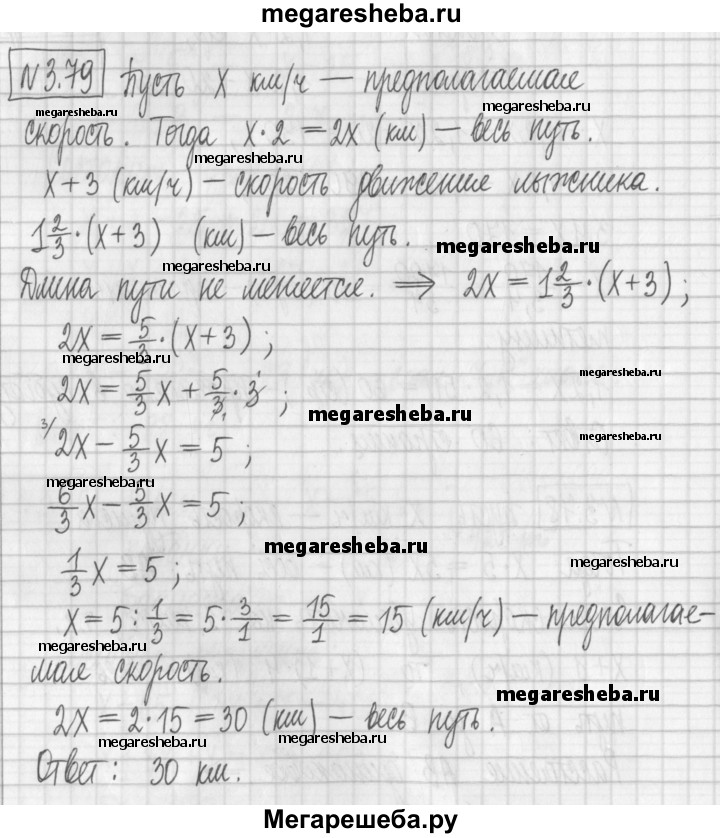 megaresheba.ru
N3.79 Пусть x км/ч — предполагаемая
megaresheba.ru megaresheba.ru
скорость. Тогда x·2 = 2x (км) — весь путь.
megaresheba.ru
x+3 (км/ч) — скорость движение лыжника.
1 2/3 · (x+3) (км) — весь путь.
megaresheba.ru megaresheba.ru
Длина пути не меняется. ⟹ 2x = 1 2/3 · (x+3);
2x = 5/3 · (x+3);
megaresheba.ru megaresheba.ru
2x = 5/3 x + 5/3 · 3;
megaresheba.ru megaresheba.ru
3/ 2x − 5/3 x = 5;
megaresheba.ru
6/3 x − 5/3 x = 5;
megaresheba.ru megaresheba.ru
1/3 x = 5;
x = 5 : 1/3 = 5 · 3/1 = 15/1 = 15 (км/ч) — предполагае-
megaresheba.ru
мая скорость.
megaresheba.ru
2x = 2·15 = 30 (км) — весь путь.
megaresheba.ru megaresheba.ru
Ответ: 30 км.
Мегарешеба.ру